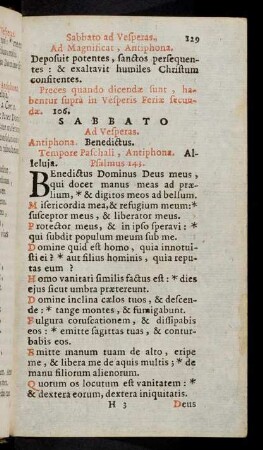 Sabbato ad Vesperas. 129
Ad Magnificat, Antiphona.
Deposuit potentes, sanctos persequen-
tes: & exaltavit humiles Christum
confitentes.
Preces quando dicendæ sunt, ha-
bentur supra in Vesperis Feriæ secun-
dæ. 106.
SABBATO
Ad Vesperas.
Antiphona. Benedictus.
Tempore Paschali, Antiphona. Al-
leluja. Psalmus 143.
BEnedictus Dominus Deus meus,
qui docet manus meas ad præ-
lium, * & digitos meos ad bellum.
Misericordia mea, & refugium meum: *
susceptor meus, & liberator meus.
Protector meus, & in ipso speravi: *
qui subdit populum meum sub me.
Domine quid est homo, quia innotui-
sti ei? * aut filius hominis, quia repu-
tas eum?
Homo vanitati similis factus est: * dies
ejus sicut umbra prætereunt.
Domine inclina cælos tuos, & descen-
de: * tange montes, & fumigabunt.
Fulgura coruscationem, & dissipabis
eos: * emitte sagittas tuas, & contur-
babis eos.
Emitte manum tuam de alto, eripe
me, & libera me de aquis multis; * de
manu filiorum alienorum.
Quorum os locutum est vanitatem: *
& dextera eorum, dextera iniquitatis.
H 3 Deus